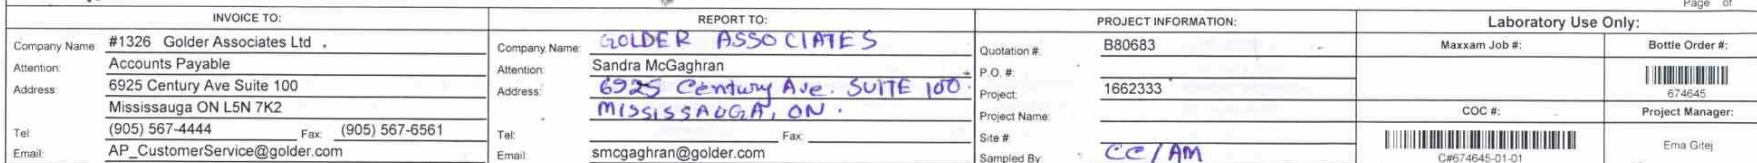 Page of
INVOICE TO:
Company Name: #1326 Golder Associates Ltd .
Attention: Accounts Payable
Address: 6925 Century Ave Suite 100
Mississauga ON L5N 7K2
Tel: (905) 567-4444 Fax: (905) 567-6561
Email: AP_CustomerService@golder.com
REPORT TO:
Company Name: GOLDER ASSOCIATES
Attention: Sandra McGaghran
Address: 6925 Century Ave. SUITE 100.
MISSISSAUGA, ON.
Tel: Fax:
Email: smcgaghran@golder.com
PROJECT INFORMATION:
Quotation #: B80683
P.O. #:
Project: 1662333
Project Name:
Site #:
Sampled By: CC/AM
Laboratory Use Only:
Maxxam Job #: Bottle Order #:
674645
COC #: Project Manager:
C#674645-01-01 Ema Gitej